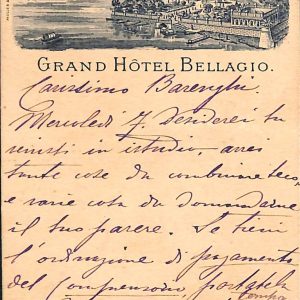 GRAND HÔTEL BELLAGIO.
Carissimo Barenghi.
Mercoledì 7. Desiderei tu
venisti in istudio, avrei
tante cose da combinare teco,
e varie cose da domandarne
il suo parere. Se trovi
l'ordinazione di pagamento
del Compromesso